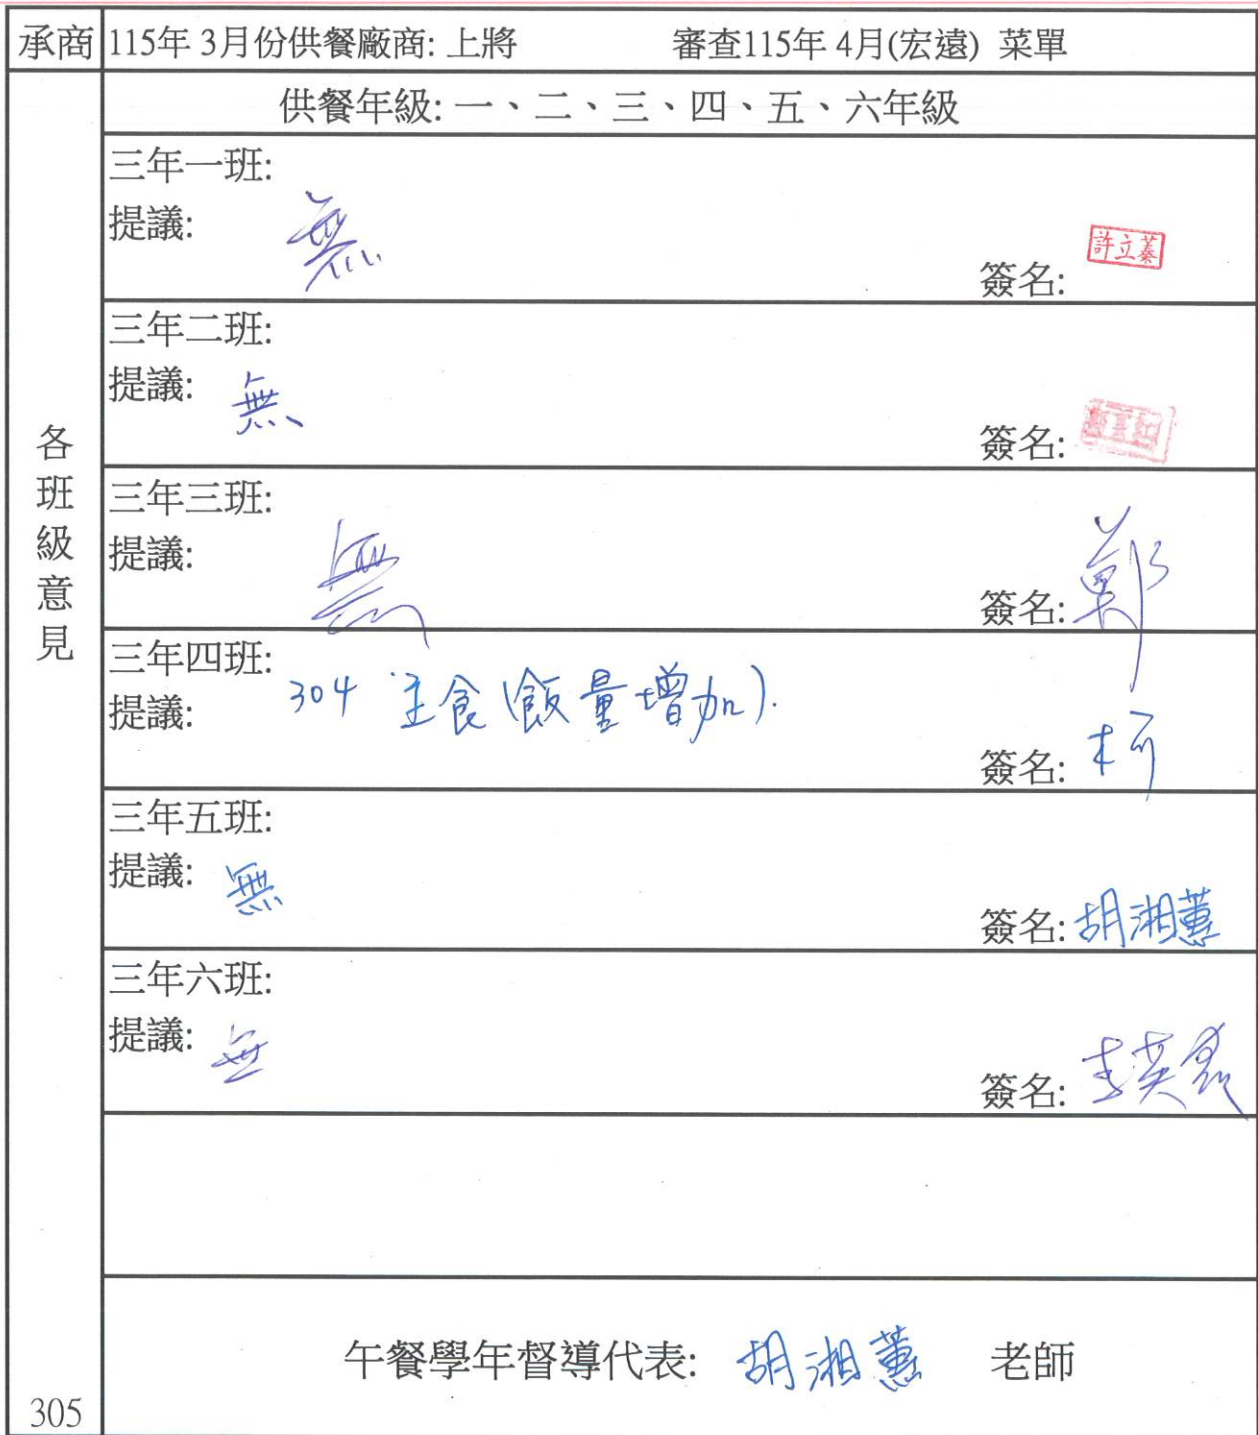 承商 115年 3月份供餐廠商: 上將 審查115年 4月(宏遠) 菜單
供餐年級: 一、二、三、四、五、六年級
各班級意見
三年一班:
提議: 無
簽名: 許立蓁
三年二班:
提議: 無
簽名:
三年三班:
提議: 無
簽名: 鄭
三年四班:
提議: 304 主食(飯量增加).
簽名: 柯
三年五班:
提議: 無
簽名: 胡湘蕙
三年六班:
提議: 無
簽名:
午餐學年督導代表: 胡湘蕙 老師
305